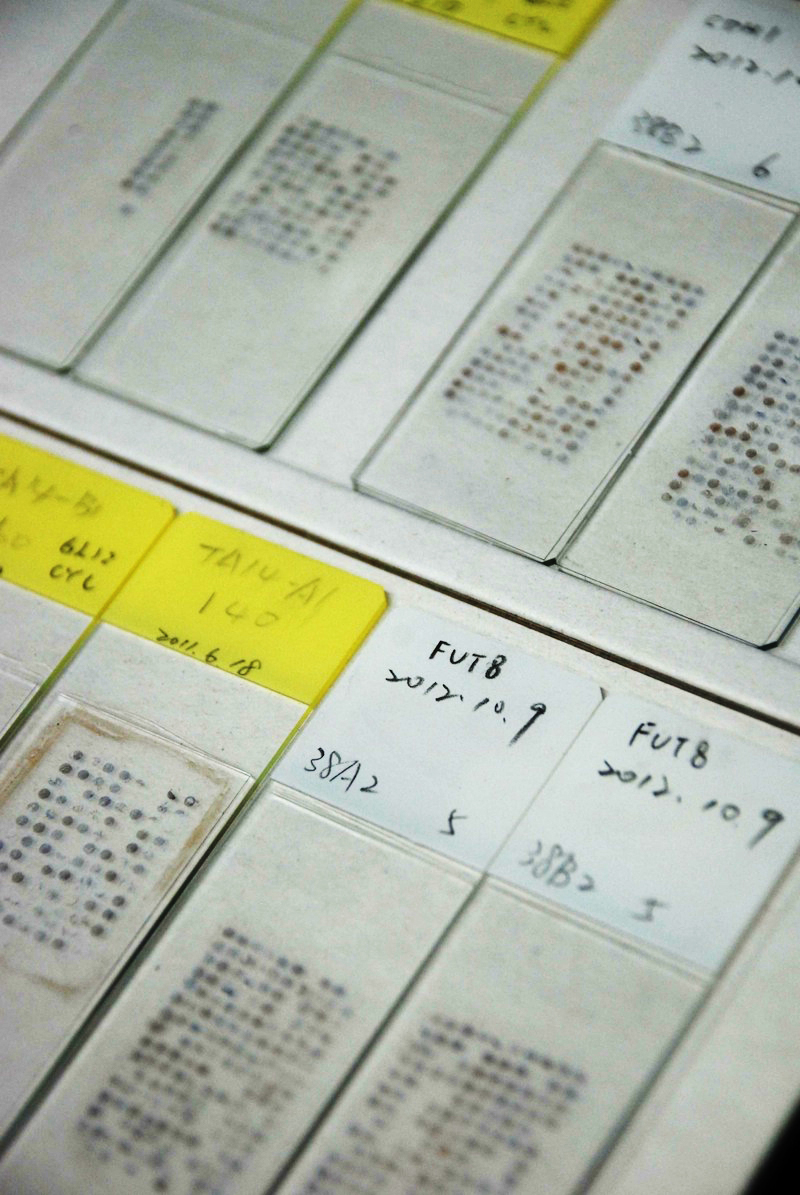 2012.1
38B2 6
6L12
CYL
TA14-A1
140
2011.6.18
FUT8
2012.10.9
38A2
5
FUT8
2012.10.9
38B2
5